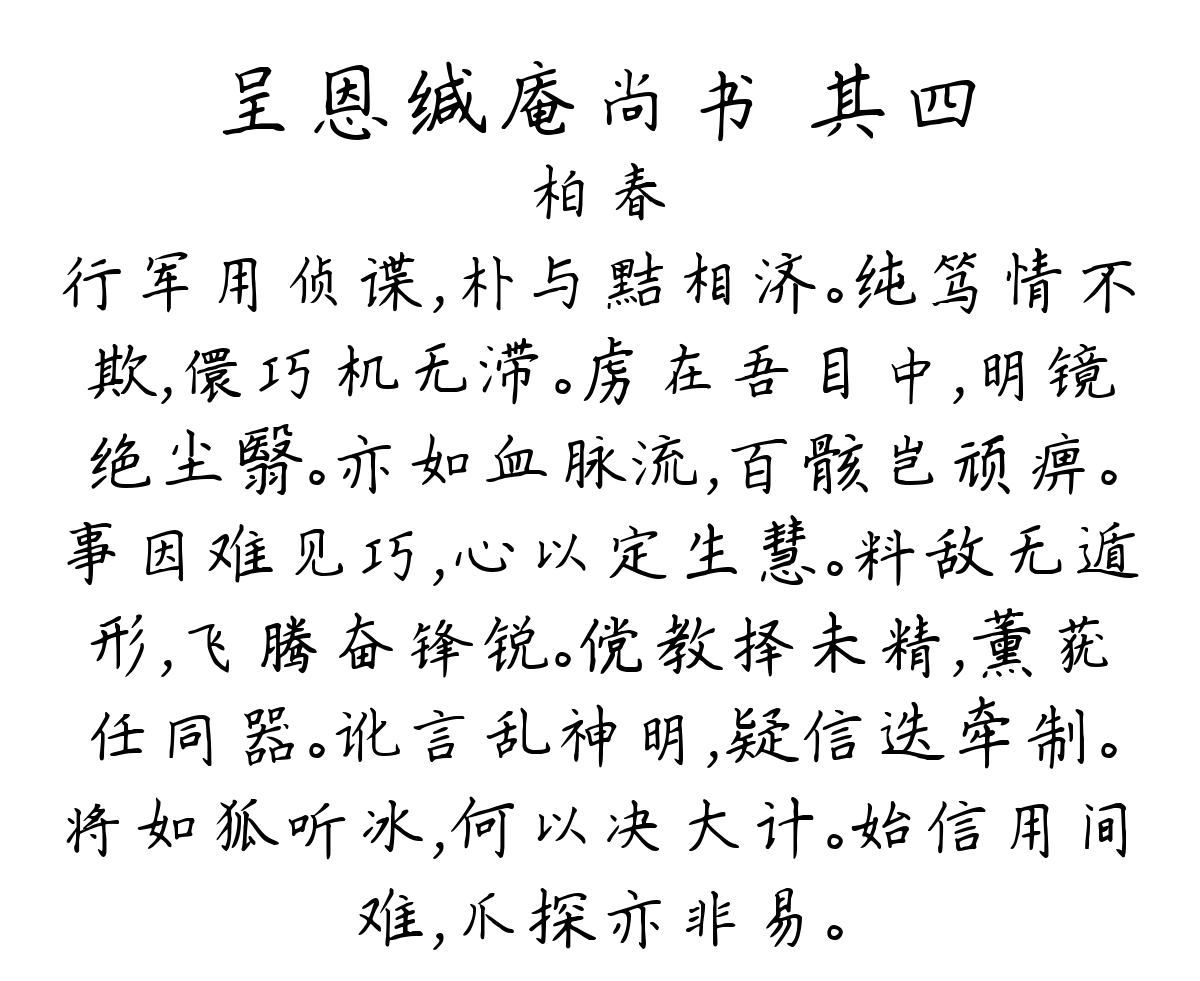 呈恩缄庵尚书 其四
柏春
行军用侦谍,朴与黠相济。纯笃情不
欺,儇巧机无滞。虏在吾目中,明镜
绝尘翳。亦如血脉流,百骸岂顽痹。
事因难见巧,心以定生慧。料敌无遁
形,飞腾奋锋锐。傥教择未精,薰莸
任同器。讹言乱神明,疑信迭牵制。
将如狐听冰,何以决大计。始信用间
难,爪探亦非易。